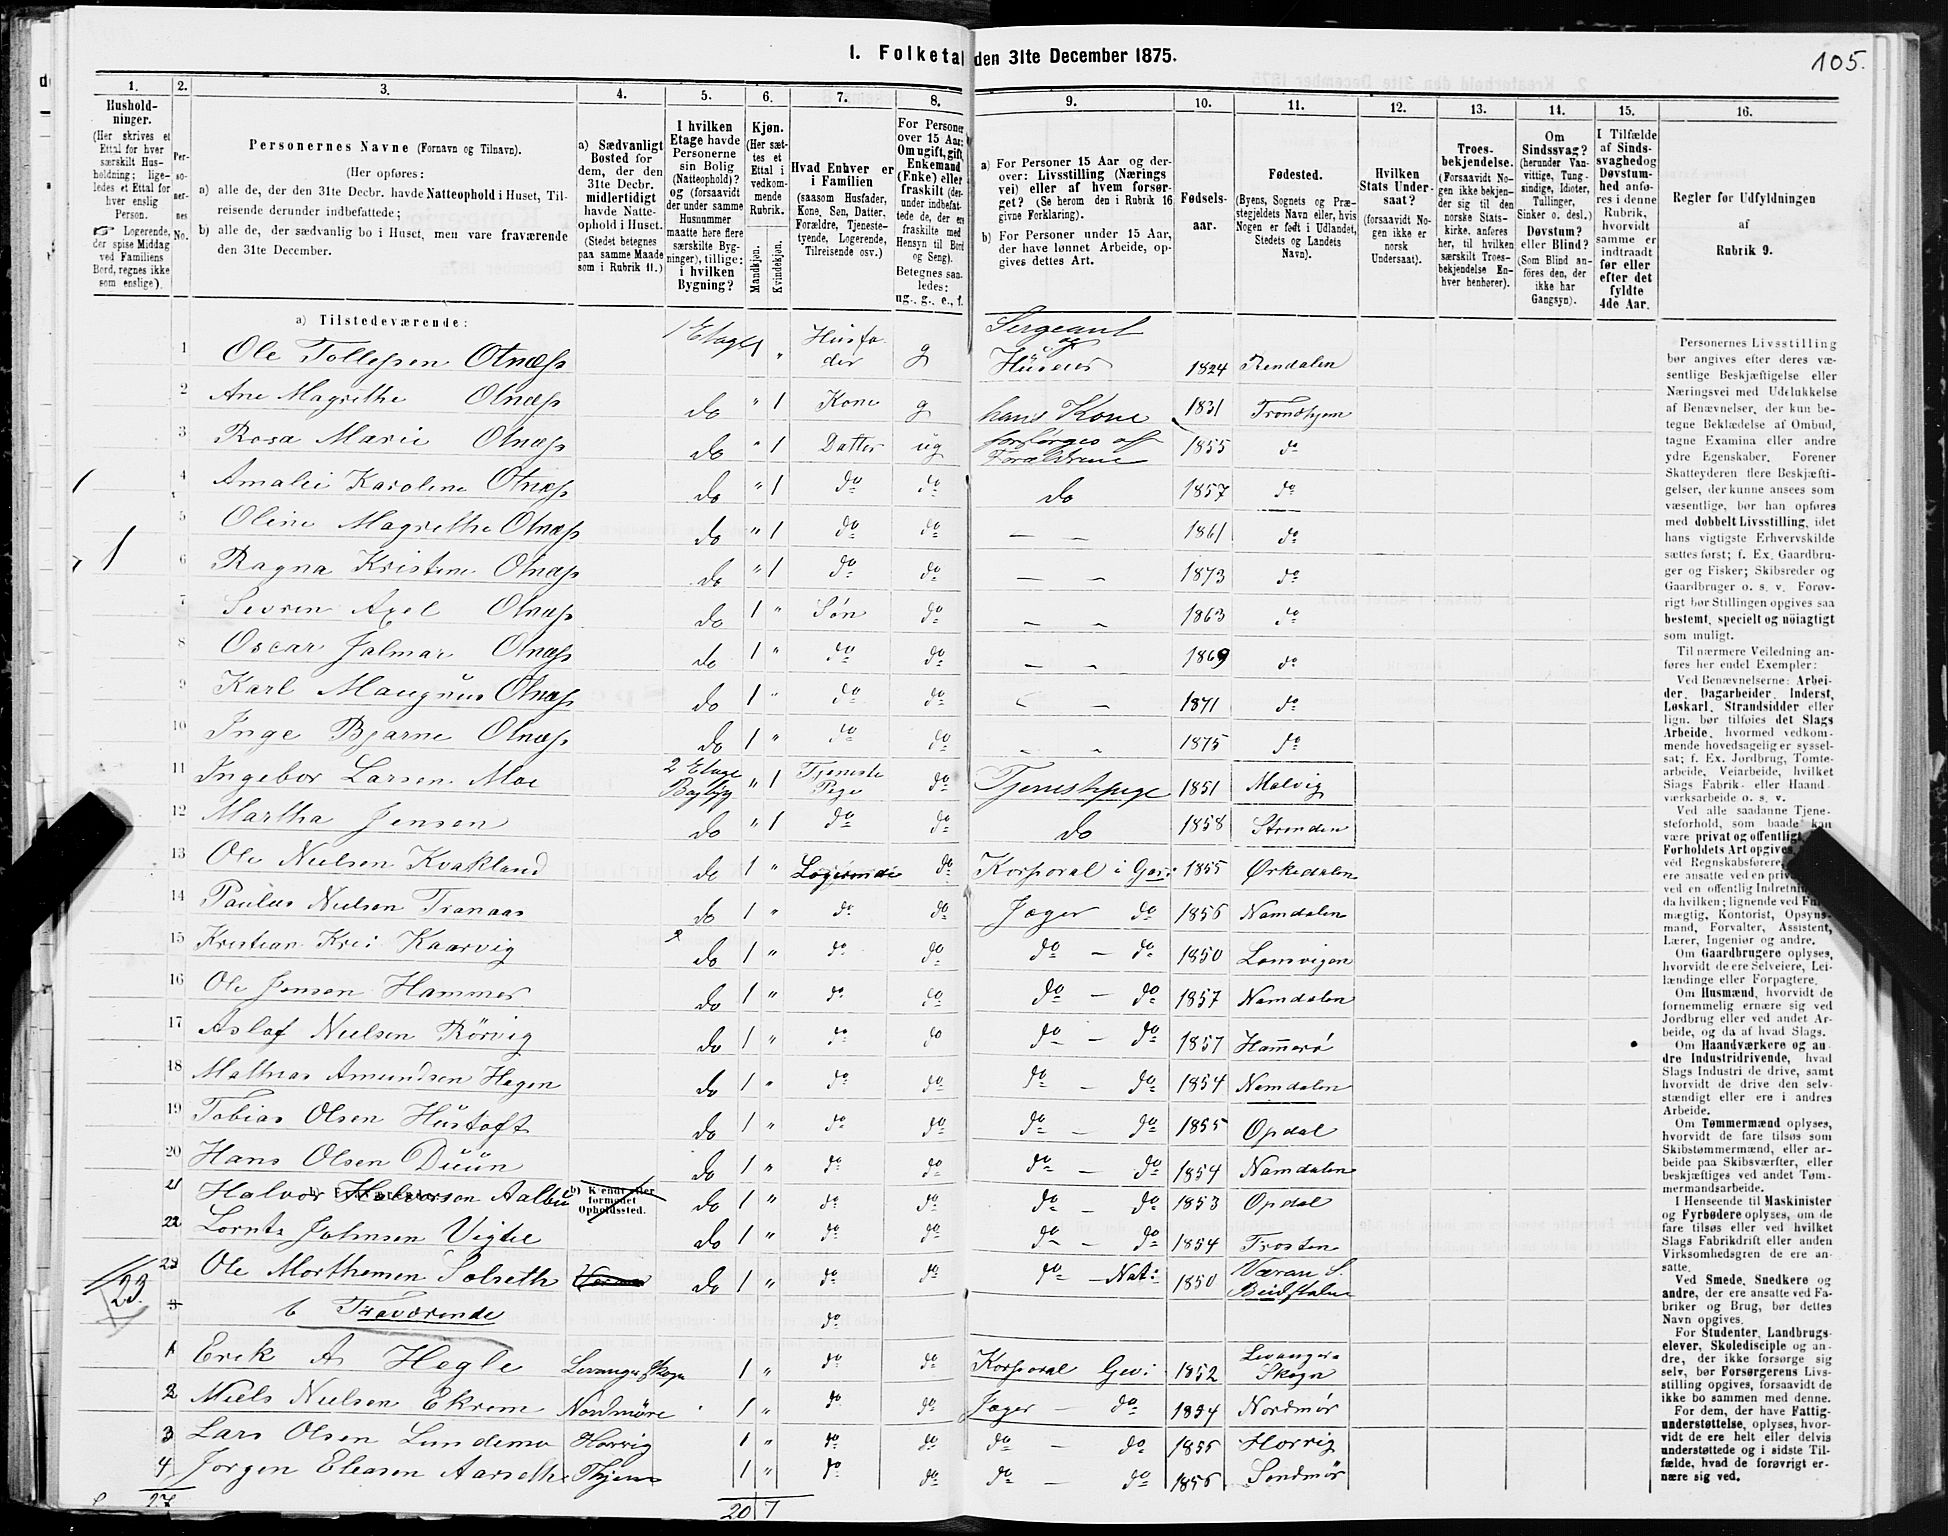 105.
I. Folketal den 31te December 1875.
1. 2. 3. 4. 5. 6. 7. 8. 9. 10. 11. 12. 13. 14. 15. 16.
Hushold-
ninger.
(Her skrives et
Ettal for hver
særskilt Hus-
holdning; lige-
ledes et Ettal for
hver enslig
Person.
☞ Logerende,
der spise Middag
ved Familiens
Bord, regnes ikke
som enslige).
Per-
so-
ner-
nes
No.
Personernes Navne (Fornavn og Tilnavn).
(Her opføres:
a) alle de, der den 31te Decbr. havde Natteophold i Huset, Til-
reisende derunder indbefattede;
b) alle de, der sædvanlig bo i Huset, men vare fraværende
den 31te December.
a) Sædvanligt
Bosted for
dem, der den
31te Decbr.
midlertidigt
havde Natte-
ophold i Huset.
(Stedet betegnes
paa samme Maade
som i Rubrik 11.)
I hvilken
Etage havde
Personerne
sin Bolig
(Natteophold)?
og (forsaavidt
der under samme
Husnummer
maatte høre flere
særskilte Byg-
ninger), tillige:
i hvilken
Bygning?
Kjøn.
(Her sæt-
tes et
Ettal i
vedkom-
mende
Rubrik.
Mandkjøn.
Kvindekjøn.
Hvad Enhver er
i Familien
(saasom Husfader,
Kone, Søn, Datter,
Forældre, Tjeneste-
tyende, Logerende,
Tilreisende osv.)
For Personer
over 15 Aar:
Om ugift, gift,
Enkemand
(Enke) eller
fraskilt (der-
under indbefat-
tede de, der ere
fraskilte med
Hensyn til Bord
og Seng).
Betegnes saa-
ledes:
ug., g., e., f.
a) For Personer 15 Aar og der-
over: Livsstilling (Nærings
vei) eller af hvem forsør-
get? (Se herom den i Rubrik 16
givne Forklaring).
b) For Personer under 15 Aar,
der have lønnet Arbeide, op-
gives dettes Art.
Fødsels-
aar.
Fødested.
(Byens, Sognets og Præ-
stegjeldets Navn eller, hvis
Nogen er født i Udlandet,
Stedets og Landets
Navn).
Hvilken
Stats Under-
saat?
(forsaavidt No-
gen ikke er
norsk
Undersaat).
Troes-
bekjendelse.
(Forsaavidt No-
gen ikke bekjen-
der sig til den
norske Stats-
kirke, anføres
her, til hvilken
særskilt Troes-
bekjendelse En-
hver henhører).
Om
Sindssvag?
(herunder Van-
vittige, Tung-
sindige, Idioter,
Tullinger,
Sinker o. desl.)
Døvstum?
eller Blind?
(Som Blind an-
føres den, der
ikke har
Gangsyn).
I Tilfælde
af Sinds-
svaghed og
Døvstum-
hed anfø-
res i denne
Rubrik,
hvorvidt
samme er
indtraadt
før eller
efter det
fyldte
4de Aar.
Regler for Udfyldningen
af
Rubrik 9.
a) Tilstedeværende:
1 Ole Tollefsen Otnæss 1 Etage 1 " Husfader g Sergeant og Huseier 1824 Rendalen
2 Ane Magrethe Otnæss do " 1 Kone g hans Kone 1831 Trondhjem
3 Rosa Marie Otnæss do " 1 Datter ug forsørges af Forældrene 1855 do
4 Amalie Karoline Otnæss do " 1 do do do 1857 do
5 Oline Magrethe Otnæss do " 1 do do — — 1861 do
6 Ragna Kristine Otnæss do " 1 do do — — 1873 do
7 Sevren Axel Otnæss do 1 " Søn do — — 1863 do
8 Oscar Jalmar Otnæss do 1 " do do — — 1869 do
9 Karl Maugnus Otnæss do 1 " do do — — 1871 do
10 Inge Bjarne Otnæss do 1 " do do — — 1875 do
11 Ingebor Larsen Moe 2 Etage Bagbyg " 1 Tjeneste Pige do Tjenestepige 1851 Malvig
12 Martha Jensen do " 1 do do do 1858 Strinden
13 Ole Nielsen Kvakland do 1 " Logerende do Korporal i Gev: 1855 Ørkedalen
14 Paulus Nielsen Tranaas do 1 " do do Jæger do 1856 Namdalen
15 Kristian Krei Kaarvig 2 do 1 " do do do — do 1850 Lomvigen
16 Ole Jensen Hammer do 1 " do do do — do 1857 Namdalen
17 Aslaf Nielsen Rörvig do 1 " do do do — do 1857 Hammerö
18 Mathias Amundsen Hagen do 1 " do do do — do 1854 Namdalen
19 Tobias Olsen Hustoft do 1 " do do do — do 1855 Opdal
20 Hans Olsen Duun do 1 " do do do — do 1854 Namdalen
b) Kjendt eller
formodet
Opholdssted.
21 Halvor Halvorsen Aalbu do 1 " do do do — do 1853 Opdal
22 Lornts Johnsen Vigtil do 1 " do do do — do 1854 Frosten
23 Ole Morthensen Solseth do 1 " do do do — Nat: 1850 Væran S. Beidstaden
23.
b Fraværende do
1 Erik A Hegle Levanger Skogn 1 " do do Korporal Gev: 1852 Levanger Skogn
2 Niels Nielsen Ekrem Nordmøre 1 " do do Jæger — do 1854 Nordmør
3 Lars Olsen Lundemo Horrig 1 " do do do — do 1855 Horrig
4 Jørgen Eleasen Aarseth Thjem 1 " do do do — do 1856 Søndmør
27 20 7
Personernes Livsstilling
bør angives efter deres væ-
sentlige Beskjæftigelse eller
Næringsvei med Udelukkelse
af Benævnelser, der kun be-
tegne Beklædelse af Ombud,
tagne Examina eller andre
ydre Egenskaber. Forener
Skatteyderen flere Beskjæfti-
gelser, der kunne ansees som
væsentlige, bør han opføres
med dobbelt Livsstilling, idet
hans vigtigste Erhvervskilde
sættes først; f. Ex. Gaardbru-
ger og Fisker; Skibsreder og
Gaardbruger o. s. v. Forøv-
rigt bør Stillingen opgives saa
bestemt, specielt og nöiagtigt
som muligt.
Til nærmere Veiledning an-
føres her endel Exempler:
Ved Benævnelserne: Arbei-
der, Dagarbeider, Inderst,
Løskarl, Strandsidder eller
lign. bør tilføies det Slags
Arbeide, hvormed vedkom-
mende hovedsagelig er syssel-
sat; f. Ex. Jordbrug, Tomte-
arbeide, Veiarbeide, hvilket
Slags Fabrik- eller Haand-
værksarbeide o. s. v.
Ved alle saadanne Tjene-
steforhold, som baade kan
være privat og offentligt,
Forholdets Art opgives,
ved Regnskabsførere,
ere ansatte ved en
ved en offentlig Indretning
da hvilken; lignende ved
mægtig, Kontorist, Opsyns-
mand, Forvalter, Assistent,
Lærer, Ingeniør og andre.
Om Gaardbrugere oplyses,
hvorvidt de ere Selveiere, Lei-
lændinge eller Forpagtere.
Om Husmænd, hvorvidt de
fornemmelig ernære sig ved
Jordbrug eller ved andet Ar-
beide, og da af hvad Slags.
Om Haandværkere og an-
dre Industridrivende, hvad
Slags Industri de drive, samt
hvorvidt de drive den selv-
stændigt eller ere i andres
Arbeide.
Om Tømmermænd oplyses,
hvorvidt de fare tilsøs som
Skibstømmermænd, eller ar-
beide paa Skibsværfter, eller
beskjæftiges ved andet Tøm-
mermandsarbeide.
I Henseende til Maskinister
og Fyrbødere oplyses, om de
fare tilsøs eller ved hvilket
Slags Fabrikdrift eller anden
Virksomhedsgren de ere an-
satte.
Ved Smede, Snedkere og
andre, der ere ansatte ved Fa-
briker og Brug, bør dettes
Navn opgives.
For Studenter, Landbrugs-
elever, Skoledisciple og an-
dre, der ikke forsørge sig
selv, bør Forsørgerens Livs-
stilling opgives, forsaavidt de
ikke bo sammen med denne.
For dem, der have Fattig-
understøttelse, oplyses, hvor-
vidt de ere helt eller delvis
understøttede og i sidste Til-
fælde, hvad de forøvrigt er-
nære sig ved.